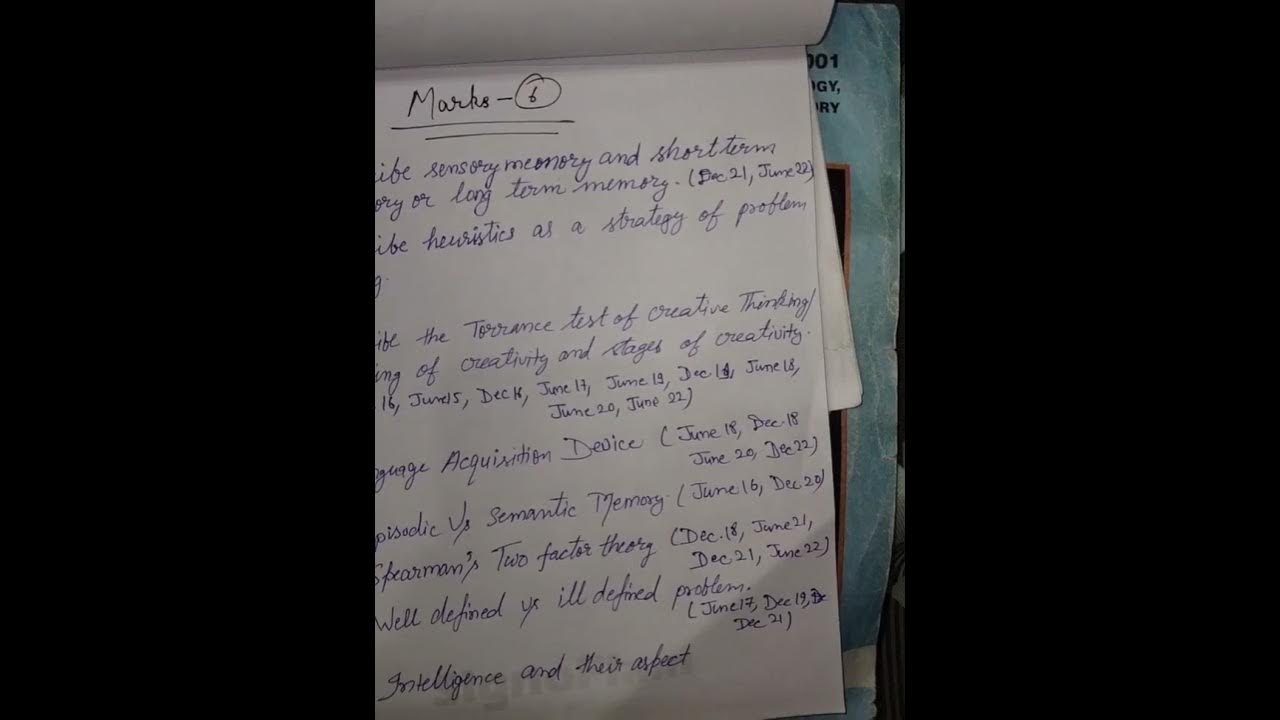 001
OGY,
ORY
Marks - 6
ibe sensory meonory and short term
ory or long term memory. (Dec 21, June 22)
ibe heuristics as a strategy of problem
g.
ibe the Torrance test of creative Thinking/
ing of creativity and stages of creativity.
16, June 15, Dec 16, June 17, June 19, Dec 19, June 18,
June 20, June 22)
nguage Acquisition Device (June 18, Dec. 18
June 20, Dec 22)
pisodic V/s Semantic Memory. (June 16, Dec. 20)
Spearman's Two factor theory (Dec. 18, June 21,
Dec 21, June 22)
Well defined v/s ill defined problem.
(June 17, Dec 19,
Dec 21)
Intelligence and their aspect